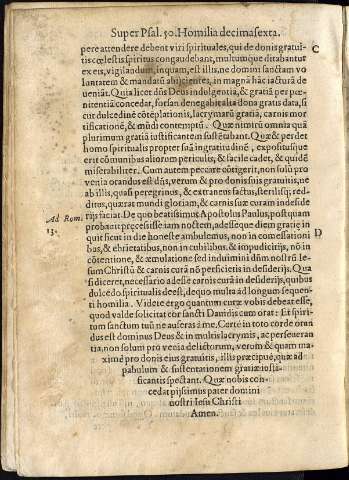 Super Psal. 50. Homilia decimasexta.
pere attendere debent viri spirituales, qui de donis gratui-
tis cœlestis spiritus congaudebant, multumque ditabantur
ex eis, vigilandum, inquam, est illis, ne domini sanctam vo
luntatem & mandatū abijcientes, in magnā hāc iacturā de
ueniāt. Quia licet dñs Deus indulgentiā, & gratiā per pæ-
nitentiā concedat, forsan denegabit alia dona gratis data, si
cut dulcedinē cōtēplationis, lacrymarū gratia, carnis mor
tificationē, & mūdi contemptū. Quæ nimirū omnia quā
plurimum gratiā iustificantem sustētabant. Quæ & perdet
homo spiritualis propter suā ingratitudinē, expositusque
erit cōmunibus aliorum periculis, & facile cadet, & quidē
miserabiliter. Cum autem peccare cōtigerit, non solū pro
venia orandus est dñs, verum & pro donis suis gratuitis, ne
ab illis, quasi peregrinus, & extraneus factus, sterilisq; red-
ditus, quærat mundi gloriam, & carnis suæ curam in deside
rijs faciat. De quo beatissimus Apostolus Paulus, postquam
Ad Rom.
13.
probauit præcessisse iam noctem, adesseque diem gratiæ in
quit sicut in die honeste ambulemus, non in comessationi
bus, & ebrietatibus, non in cubilibus, & impudicitijs, nō in
cōtentione, & æmulatione sed induimini dñm nostrū Ie-
sum Christū & carnis curā nō perficietis in desiderijs. Qua
si diceret, necessario adesse carnis curā in desiderijs, quibus
dulcedo spiritualis deest, de quo multa ad longum sequen-
ti homilia. Videte ergo quantum curæ vobis debeat esse,
quod valde solicitat cor sancti Dauidis cum orat: Et spiri-
tum sanctum tuū ne auferas à me. Certè in toto corde oran
dus est dominus Deus & in multis lacrymis, ac perseueran
tia, non solum pro venia delictorum, verum & quam ma-
ximè pro donis eius gratuitis, illis præcipuè, quæ ad
pabulum & sustentationem gratiæ iusti-
ficantis spectant. Quæ nobis con-
cedat pijssimus pater domini
nostri Iesu Christi
Amen.
C
D